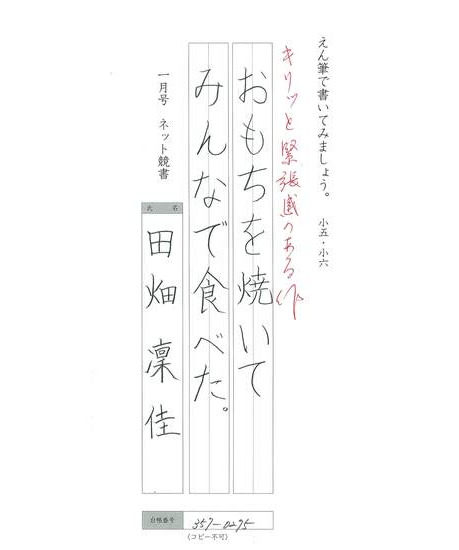 えん筆で書いてみましょう。 小五・小六
キリッと緊張感のある作
おもちを焼いて
みんなで食べた。
一月号 ネット競書
氏名
田畑凜佳
台帳番号 357-0275
(コピー不可)